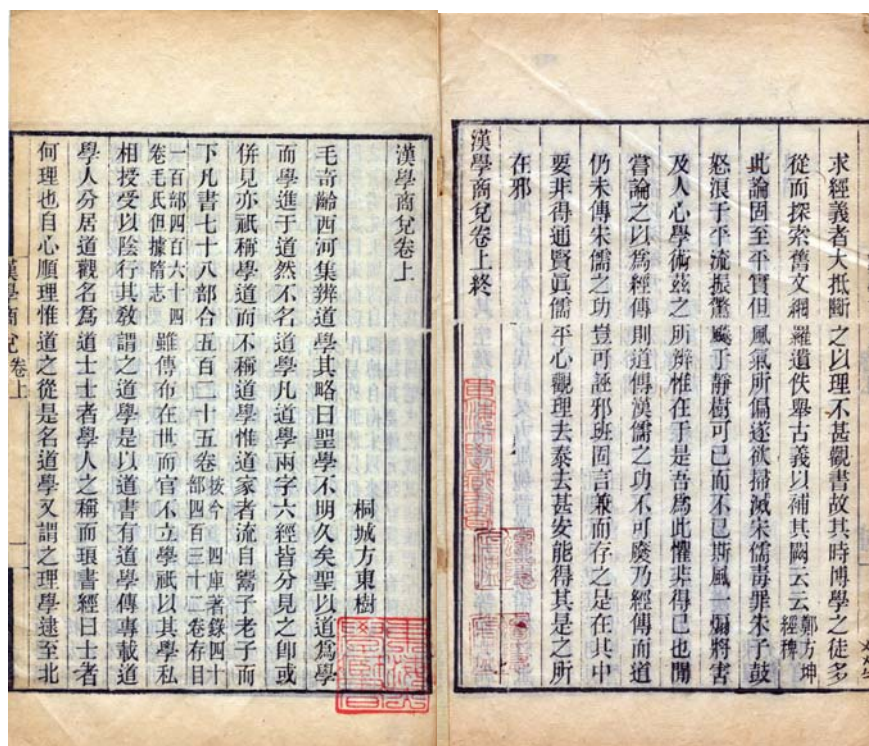 求經義者大抵斷之以理不甚觀書故其時博學之徒多
從而探索舊文網羅遺佚舉古義以補其闕云云鄭方坤
經稗
此論固至平實但風氣所偏遂欲掃滅宋儒毒罪朱子鼓
怒浪于平流振驚飈于靜樹可已而不已斯風一煽將害
及人心學術茲之所辨惟在于是吾爲此懼非得已也閒
嘗論之以爲經傳則道傳漢儒之功不可廢乃經傳而道
仍未傳宋儒之功豈可誣邪班固言兼而存之是在其中
要非得通賢眞儒平心觀理去泰去甚安能得其是之所
在邪
漢學商兌卷上終
漢學商兌卷上
桐城方東樹
毛奇齡西河集辨道學其略曰聖學不明久矣聖以道爲學
而學進于道然不名道學凡道學兩字六經皆分見之卽或
併見亦祇稱學道而不稱道學惟道家者流自鬻子老子而
下凡書七十八部合五百二十五卷按今四庫著錄四十
部四百三十二卷存目
一百部四百六十四
卷毛氏但據隋志雖傳布在世而官不立學祇以其學私
相授受以陰行其敎謂之道學是以道書有道學傳專載道
學人分居道觀名爲道士士者學人之稱而琅書經曰士者
何理也自心順理惟道之從是名道學又謂之理學逮至北
漢學商兌卷上